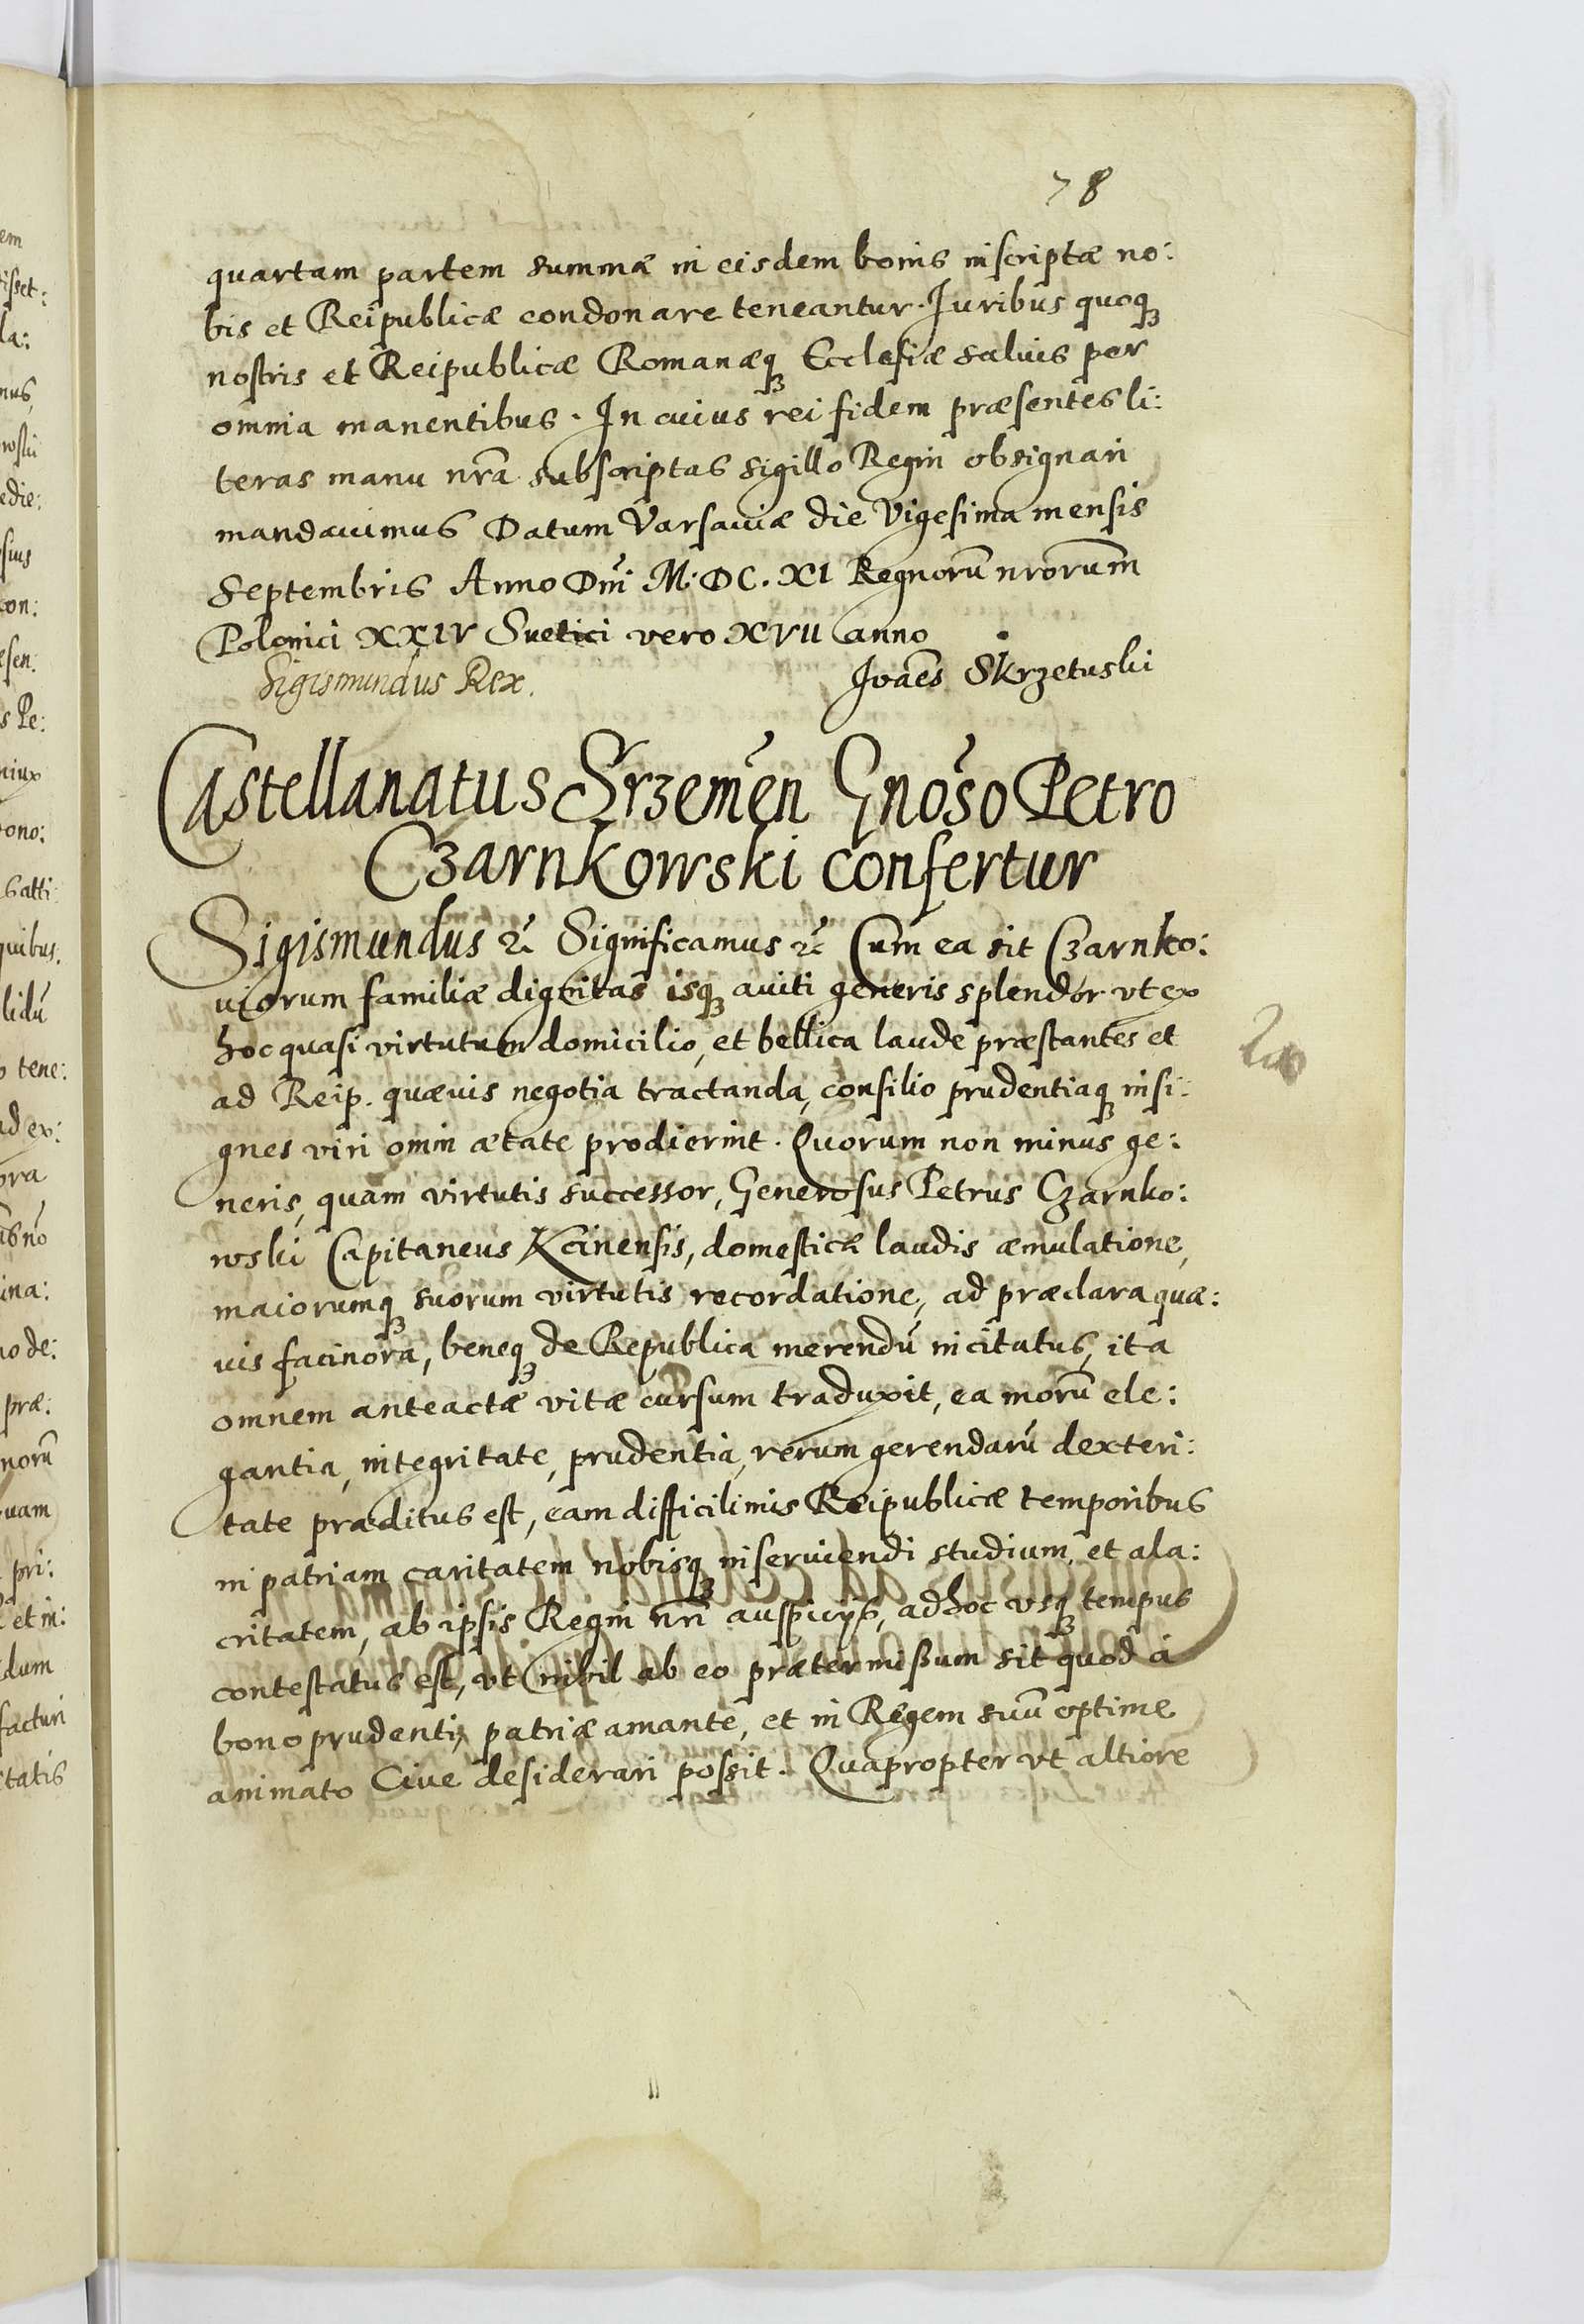 78
quartam partem summæ in eisdem bonis inscriptæ no:
bis et Reipublicæ condonare teneantur. Iuribus quoqꝫ
nostris et Reipublicæ Romanæqꝫ Ecclesiæ saluis per
omnia manentibus. In cuius rei fidem præsentes li:
teras manu nrã subscriptas sigillo Regni obsignari
mandauimus Datum Varsauiæ die Vigesima mensis
Septembris Anno Dni M. DC. XI Regnorũ nrorum
Polonici XXIV Suetici vero XVII anno
Sigismundus Rex. Ioães Skrzetuski
Castellanatus Srzemẽn Gnõso Petro
Czarnkowski confertur
Sigismundus ꝛc Significamus ꝛc Cum ea sit Czarnko:
uiorum familiæ dignitas isqꝫ auiti generis splendor vt ex
hoc quasi virtutum domicilio, et bellica laude præstantes et
ad Reip. quæuis negotia tractanda, consilio prudentiaqꝫ insi:
gnes viri omni ætate prodierint. Quorum non minus ge:
neris, quam virtutis successor, Generosus Petrus Czarnko:
wski Capitaneus Kcinensis, domesticæ laudis æmulatione,
maiorumqꝫ suorum virtutis recordatione, ad præclara quæ:
uis facinora, beneqꝫ de Republica merendũ incitatus, ita
omnem anteactæ vitæ cursum traduxit, ea morũ ele:
gantia, integritate, prudentia, rerum gerendarũ dexteri:
tate præditus est, eam difficilimis Reipublicæ temporibus
in patriam caritatem nobisqꝫ inseruiendi studium, et ala:
critatem, ab ipsis Regni nri auspicijs, ad hoc vsqꝫ tempus
contestatus est, vt nihil ab eo prætermißum sit quod à
bono prudenti, patriæ amante, et in Regem suũ optime
animato Ciue desiderari possit. Quapropter vt altiore